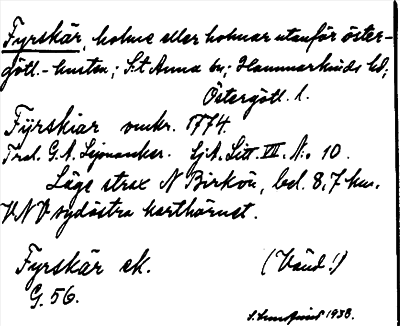 Fyrskär, holme eller holmar utanför öster-
götl.-kusten; S:t Anna sn; Hammarkinds hd;
Östergötl. l.
Fÿrskiar omkr. 1774.
Trol. G. A. Leijonancker. Sjk. Litt. VII. N:o 10.
Läge strax N Birkön, bel. 8,7 km.
VNV sydöstra karthörnet.
Fyrskär ek.
(Vänd!)
G. 56.
1938.